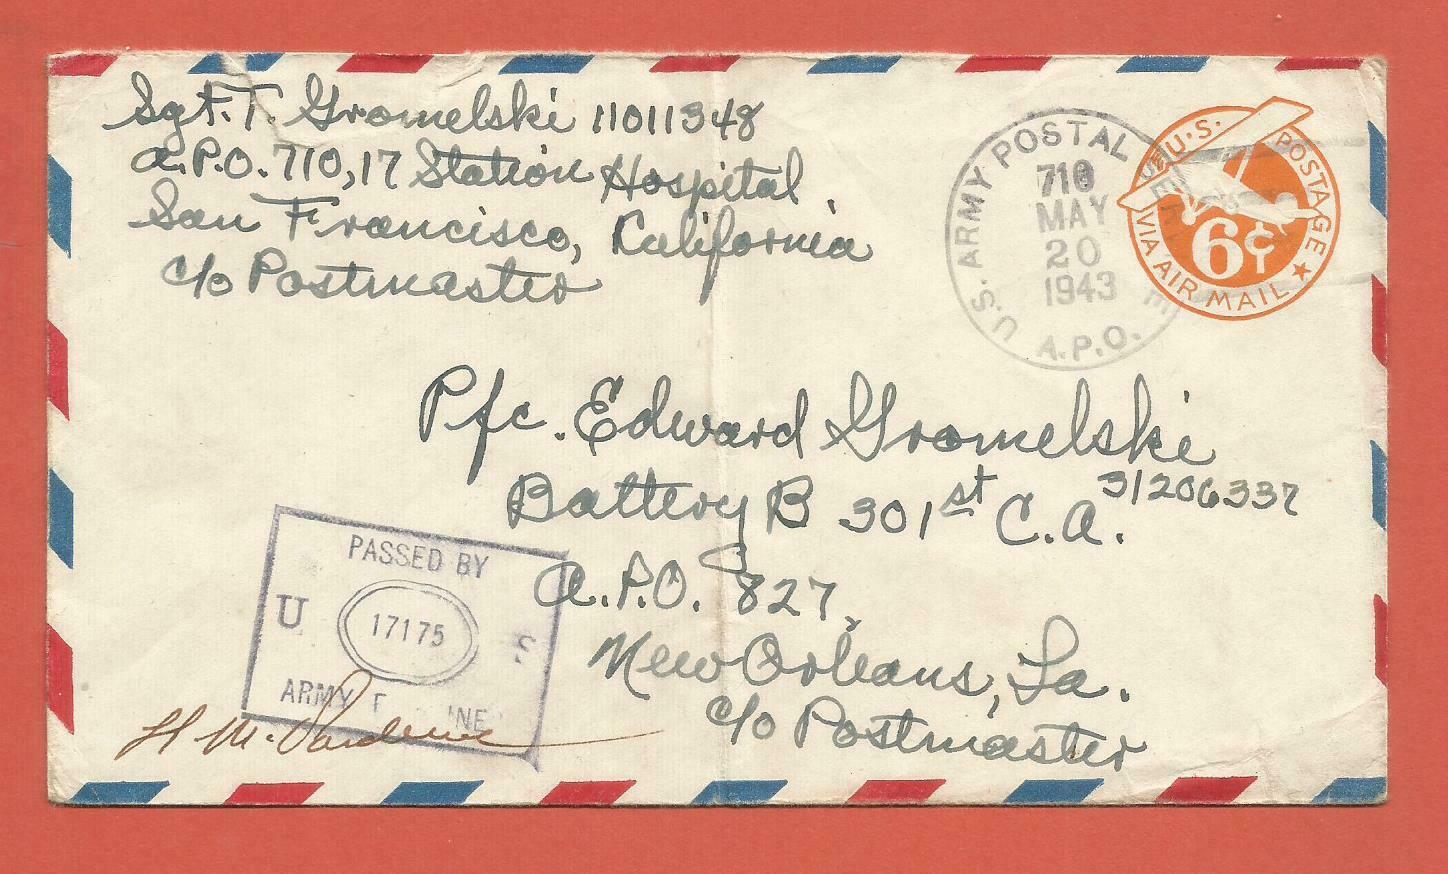 Sgt. T. Gromelski 11011348
A.P.O. 710, 17 Station Hospital,
San Francisco, California
c/o Postmaster
U.S. ARMY POSTAL SER E
710
MAY
20
1943
A.P.O.
U.S. POSTAGE
6¢
VIA AIR MAIL
Pfc. Edward Gromelski
31206337
Battery B 301st C.A.
A.P.O. 827,
New Orleans, La.
c/o Postmaster
PASSED BY
U 17175 S
ARMY E INE
H M.